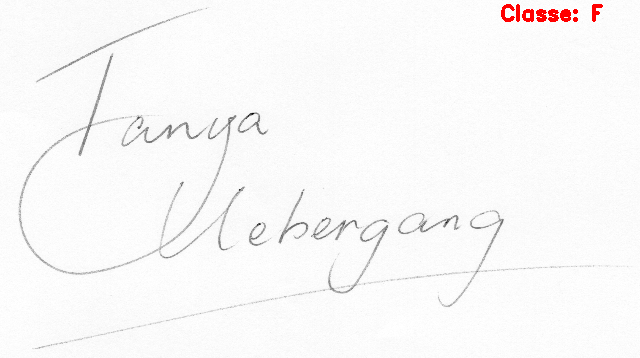 Classe: F
Tanya
Uebergang